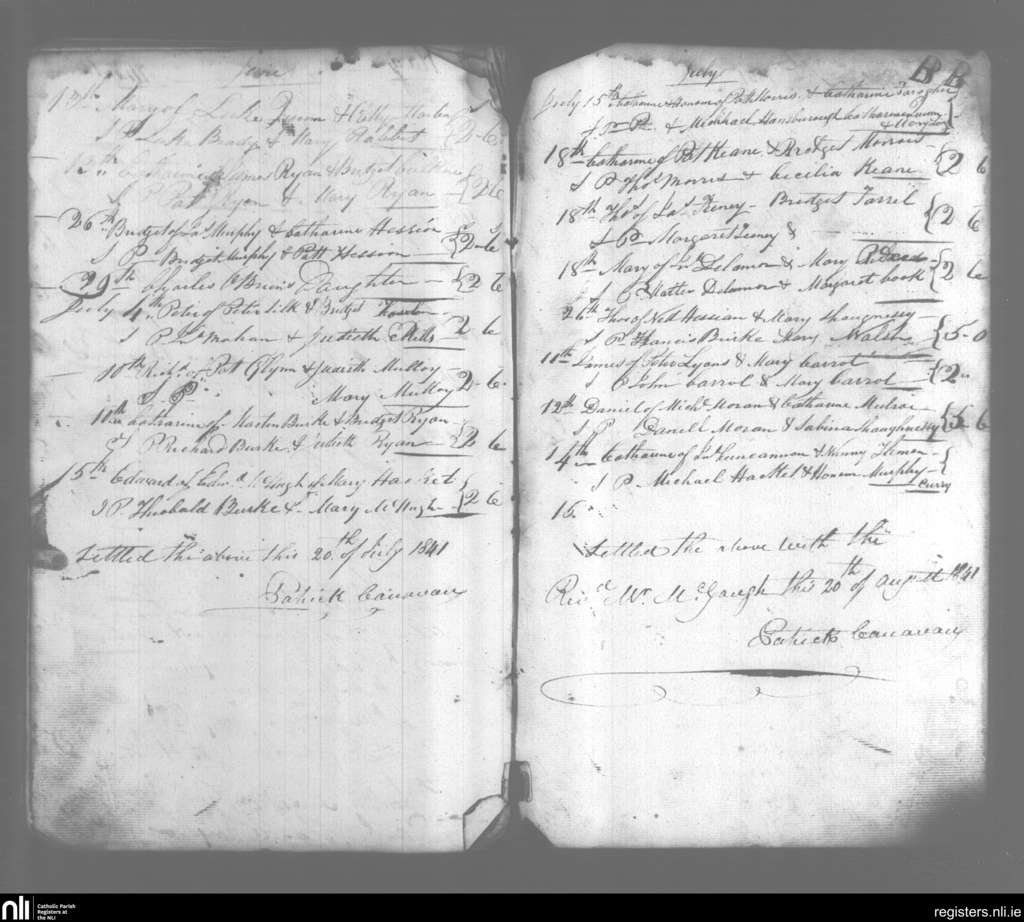 June
13th Mary of Luke Quinn &
S P Luke Brady & Mary 2-6
13th Catharine of James Ryan & Bridget
S P Patt Ryan & Mary Ryan 2 6
26th Bridget of Jas Murphy & Catharine Hession
S P Bridget Murphy & Patt Hession 2-6
29th Charles O Briens Daughter - 2 6
July 4th Peter of Peter Silk & Bridget
S P Jn Mohan & Judieth Mills 2 6
10th Richd of Pat Glynn & Judieth Mulloy
S P Mary Mulloy 2-6
11th Catharine of Martin Burke & Bridget Ryan
S P Richard Burke & Judieth Ryan 2 6
5th Edward of Edwd McHugh & Mary Hacket
S P Theobald Burke & Mary McHugh 2 6
Settled the above this 20th of July 1841
Patrick Canavan
July
July 15th Catharine & Honour of Patt Morris & Catharine
S P & Michael Hansburough Catharine
18th Catharine of Pat Keane & Bridget Morris
S P Thos Morris & Cecilia Keane 2 6
18th Thos of Jas Feney - Bridget Farrel
S P Margaret Feney & 2 6
18th Mary of Jn Delamor & Mary
S P Matten Delamor & Margaret Cook 2 6
26th Thos of Nell Hessian & Mary Shaugnessy
S P Francis Burke Mary 5-0
11th James of John Lyons & Mary Carrol
S P John Carrol & Mary Carrol 2
12th Daniel of Michl Moran & Catharine
S P Daniell Moran & Sabina Shaughnessy 5 6
14th Catharine of Jn Cuncannon & Winny
S P Michael Hacket & Honour Murphy
Curry
15
Settled the above with the
Revd Mr McGaugh this 20th of August 1841
Patrick Canavan
nli
Catholic Parish
Registers at
the NLI
registers.nli.ie